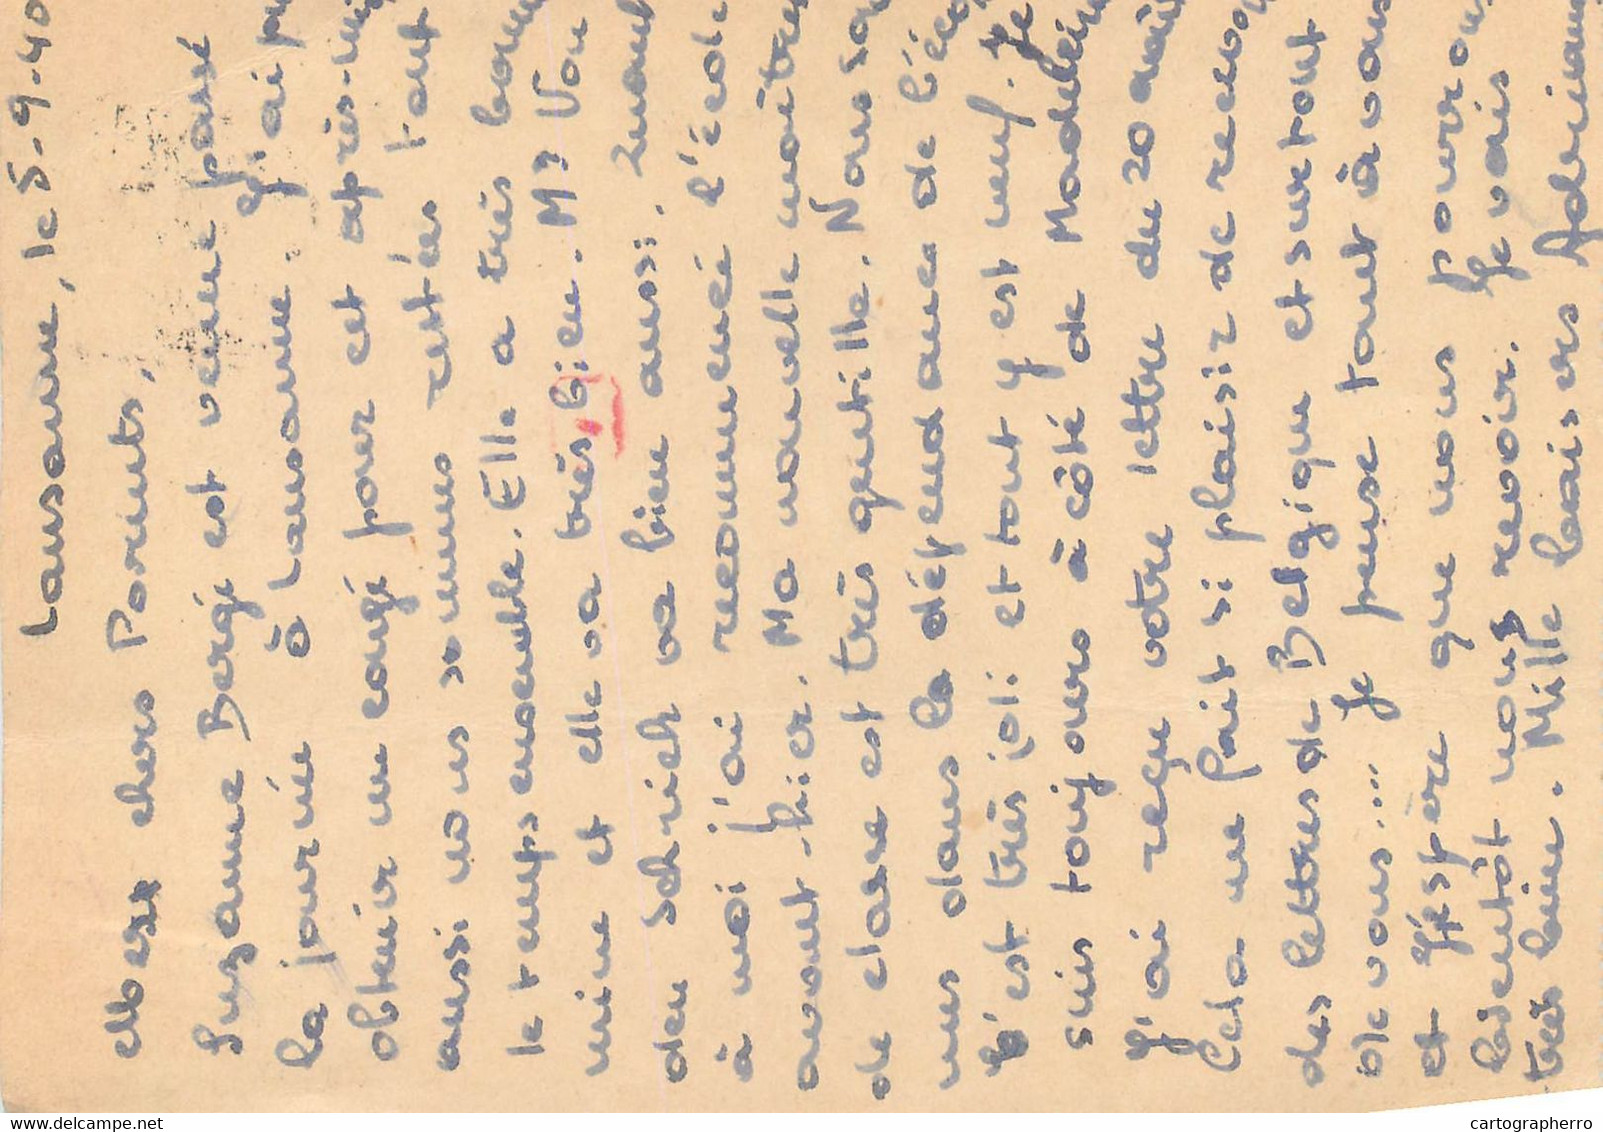 Lausanne, le 5.9.40
Mes chers Parents,
Suzanne Bergé est venue passé
la journée à Lausanne. J'ai pu
obtenir un congé pour cet après-mi
aussi nous sommes restées tout
le temps ensemble. Elle a très bonne
mine et elle va très bien. Mr Von
den Schrieck va bien aussi. Quant
à moi j'ai recommencé l'école
avant-hier. Ma nouvelle maîtresse
de classe est très gentille. Nous som
mes dans la dépendance de l'éco
C'est très joli et tout y est neuf. Je
suis toujours à côté de Madeleine
J'ai reçu votre lettre du 20 août
Cela me fait si plaisir de recevoir
des lettres de Belgique et surtout
de vous.... Je pense tout à vous
et j'espère que nous pourrons
bientôt nous revoir. Je vais
très bien. Mille baisers
delcampe.net
cartographerro